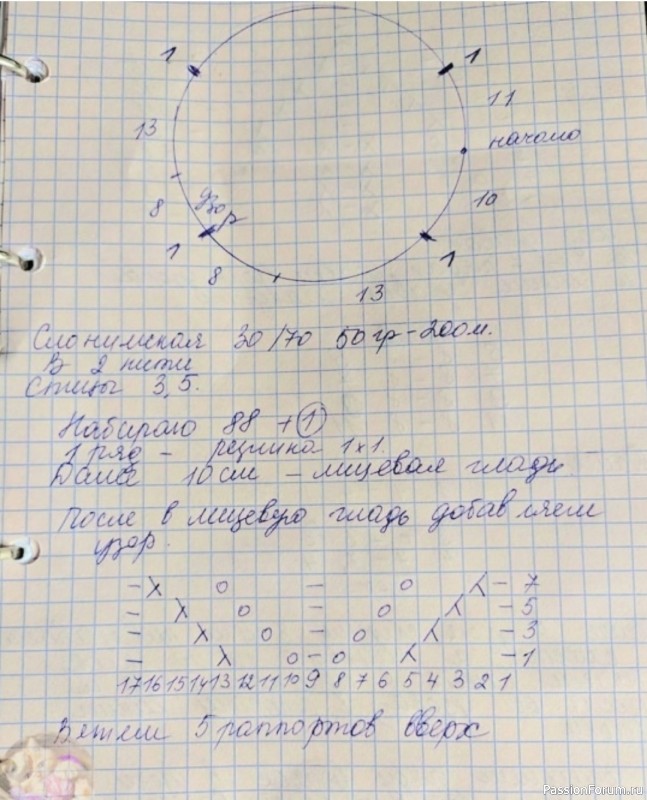 1 1
11
13 начало
8 узор 10
1 8 1
13
Слонимская 30/70 50гр-200м.
В 2 нити
Спицы 3,5.
Набираю 88 + 1
1 ряд - резинка 1х1.
Далее 10см - лицевая гладь
После в лицевую гладь добавляем
узор.
- λ о - о λ - 7
- λ о - о λ - 5
- λ о - о λ - 3
- λ о - о λ - 1
17 16 15 14 13 12 11 10 9 8 7 6 5 4 3 2 1
Вяжем 5 раппортов вверх
PassionForum.ru